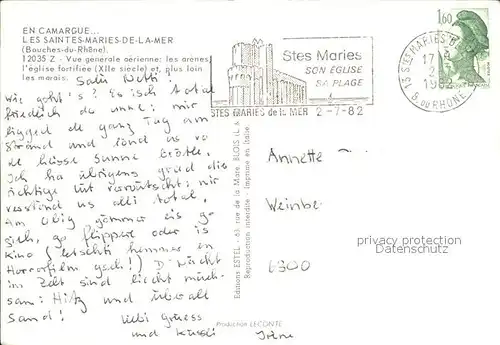 EN CAMARGUE...
LES SAINTES-MARIES-DE-LA-MER
(Bouches-du-Rhône)
12035 Z - Vue générale aérienne: les arènes
l'église fortifiée (XIIe siècle) et, plus loin
les marais.
Stes Maries
SON EGLISE
SA PLAGE
STES MARIES de la MER 2-7-82
1,60
13 STES MARIES
17
2
1982
B. DU RHÔNE
Salü Netti!
Wie goht's? Es isch total
friedlich do unne: mir
ligged de ganz Tag am
Strand und lönd us vo
de heisse Sunne brötle.
Ich ha übrigens grad die
richtige Lüt verwütscht: mir
verstönd us all total.
Am Obig gömmer eis go
zieh, go flippere oder is
Kino (letschti hemmer en
Horrorfilm gseh!) D'Nächt
im Zelt sind liecht müeh-
sam: Hitz und überall
Sand!
Liebi Grüess
und Küssli
Irene
Annette
Weinbe
6300
Editions ESTEL - 63, rue de la Mare BLOIS (L. &
Reproduction interdite - Imprimé en Italie
Production LECONTE
privacy protection
Datenschutz